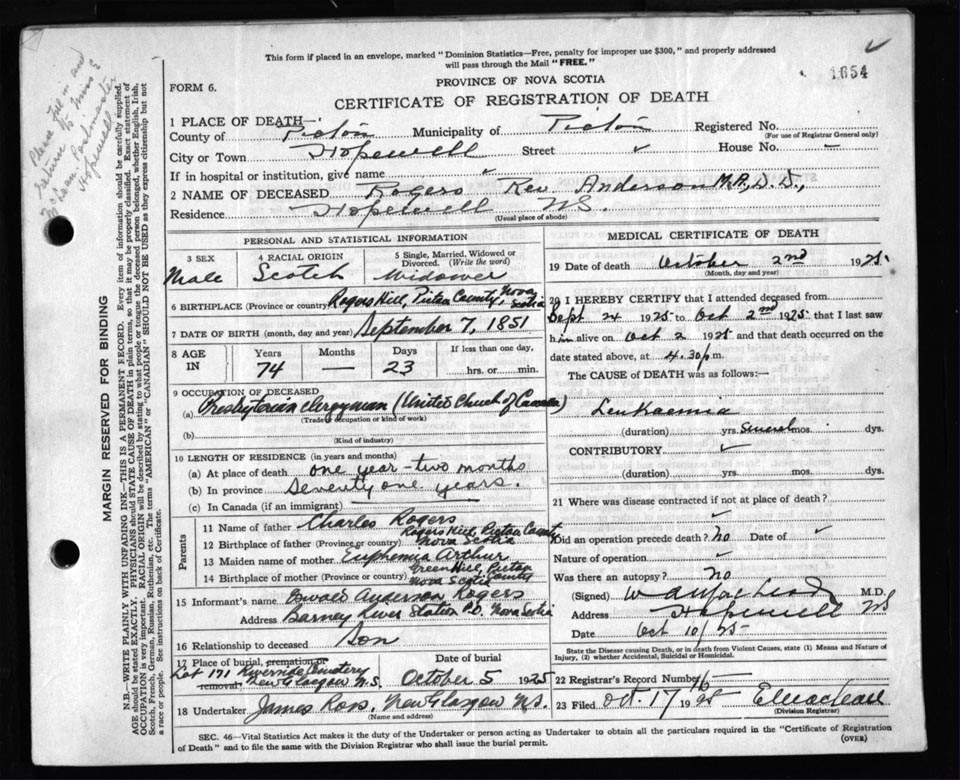 This form if placed in an envelope, marked "Dominion Statistics—Free, penalty for improper use $300," and properly addressed
will pass through the Mail "FREE."
1654
PROVINCE OF NOVA SCOTIA
FORM 6.
CERTIFICATE OF REGISTRATION OF DEATH
Please fill in and
return to Miss E
McLean Postmaster
Hopewell
MARGIN RESERVED FOR BINDING
N.B.—WRITE PLAINLY WITH UNFADING INK—THIS IS A PERMANENT RECORD. Every item of information should be carefully supplied.
AGE should be stated EXACTLY. PHYSICIANS should STATE CAUSE OF DEATH in plain terms, so that it may be properly classified. Exact statement of
OCCUPATION is very important. RACIAL ORIGIN will be described by stating to what people or tongue the deceased person belonged, whether English, Irish,
Scotch, French, German, Russian, Ruthenian, etc. The terms "AMERICAN" or "CANADIAN" SHOULD NOT BE USED as they express citizenship but not
a race or people. See instructions on back of Certificate.
1 PLACE OF DEATH—
County of Pictou Municipality of Pictou Registered No.
(For use of Registrar General only)
City or Town Hopewell Street ✓ House No. –
If in hospital or institution, give name ✓
2 NAME OF DECEASED Rogers Rev. Anderson M.A., D.D.,
Residence Hopewell N.S.
(Usual place of abode)
PERSONAL AND STATISTICAL INFORMATION
3 SEX 4 RACIAL ORIGIN 5 Single, Married, Widowed or
Divorced. (Write the word)
Male Scotch Widower
6 BIRTHPLACE (Province or country) Rogers Hill, Pictou County, Nova Scotia
7 DATE OF BIRTH (month, day and year) September 7, 1851
8 AGE IN Years Months Days If less than one day,
74 — 23 hrs. or min.
9 OCCUPATION OF DECEASED
(a) Presbyterian Clergyman (United Church of Canada)
(Trade, occupation or kind of work)
(b)
(Kind of industry)
10 LENGTH OF RESIDENCE (in years and months)
(a) At place of death one year - two months
(b) In province Seventy one years.
(c) In Canada (if an immigrant)
Parents
11 Name of father Charles Rogers
12 Birthplace of father (Province or country) Rogers Hill, Pictou County, Nova Scotia
13 Maiden name of mother Euphemia Arthur
14 Birthplace of mother (Province or country) Green Hill, Pictou County Nova Scotia
15 Informant's name Anderson Rogers
Address Barney River Station P.O. Nova Scotia
16 Relationship to deceased Son
17 Place of burial, cremation or removal, Date of burial
Lot 171 Riverside Cemetery
New Glasgow N.S. October 5 1925
18 Undertaker James Ross, New Glasgow N.S.
(Name and address)
MEDICAL CERTIFICATE OF DEATH
19 Date of death October 2nd 1925
(Month, day and year)
20 I HEREBY CERTIFY that I attended deceased from
Sept 24 1925 to Oct 2nd 1925 that I last saw
him alive on Oct 2 1925 and that death occurred on the
date stated above, at 4.30 p.m.
The CAUSE of DEATH was as follows:—
Leukaemia
(duration) yrs. Several mos. dys.
CONTRIBUTORY ✓
(duration) yrs. mos. dys.
21 Where was disease contracted if not at place of death?
✓
Did an operation precede death? No Date of ✓
Nature of operation ✓
Was there an autopsy? No
(Signed) M.D.
Address Hopewell NS
Date Oct 10/25
State the Disease causing Death, or in death from Violent Causes, state (1) Means and Nature of
Injury, (2) whether Accidental, Suicidal or Homicidal.
22 Registrar's Record Number 16
23 Filed Oct. 17 1925
(Division Registrar)
SEC. 46—Vital Statistics Act makes it the duty of the Undertaker or person acting as Undertaker to obtain all the particulars required in the "Certificate of Registration
of Death" and to file the same with the Division Registrar who shall issue the burial permit.
(OVER)